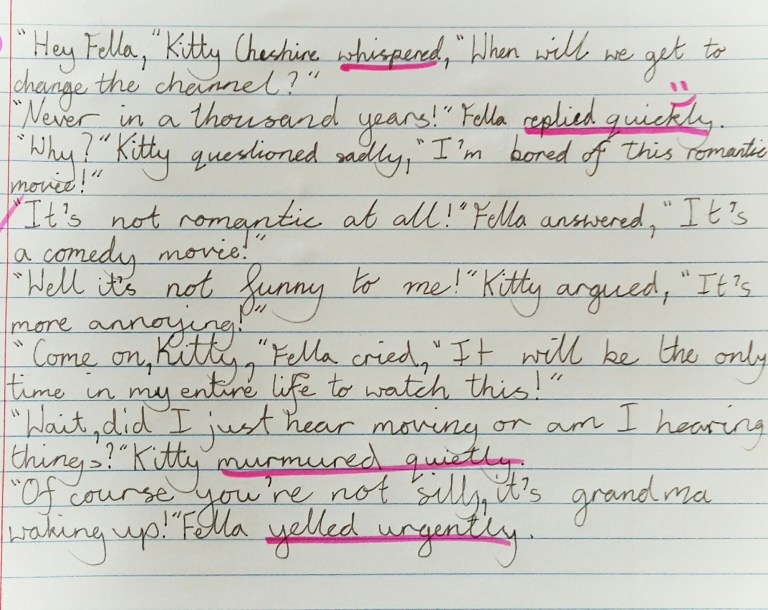 "Hey Fella," Kitty Cheshire whispered, "When will we get to
change the channel?"
"Never in a thousand years!" Fella replied quickly.
"Why?" Kitty questioned sadly, "I'm bored of this romantic
movie!"
"It's not romantic at all!" Fella answered, "It's
a comedy movie!"
"Well it's not funny to me!" Kitty argued, "It's
more annoying!"
"Come on, Kitty," Fella cried, "It will be the only
time in my entire life to watch this!"
"Wait, did I just hear moving or am I hearing
things?" Kitty murmured quietly.
"Of course you're not silly, it's grandma
waking up!" Fella yelled urgently.